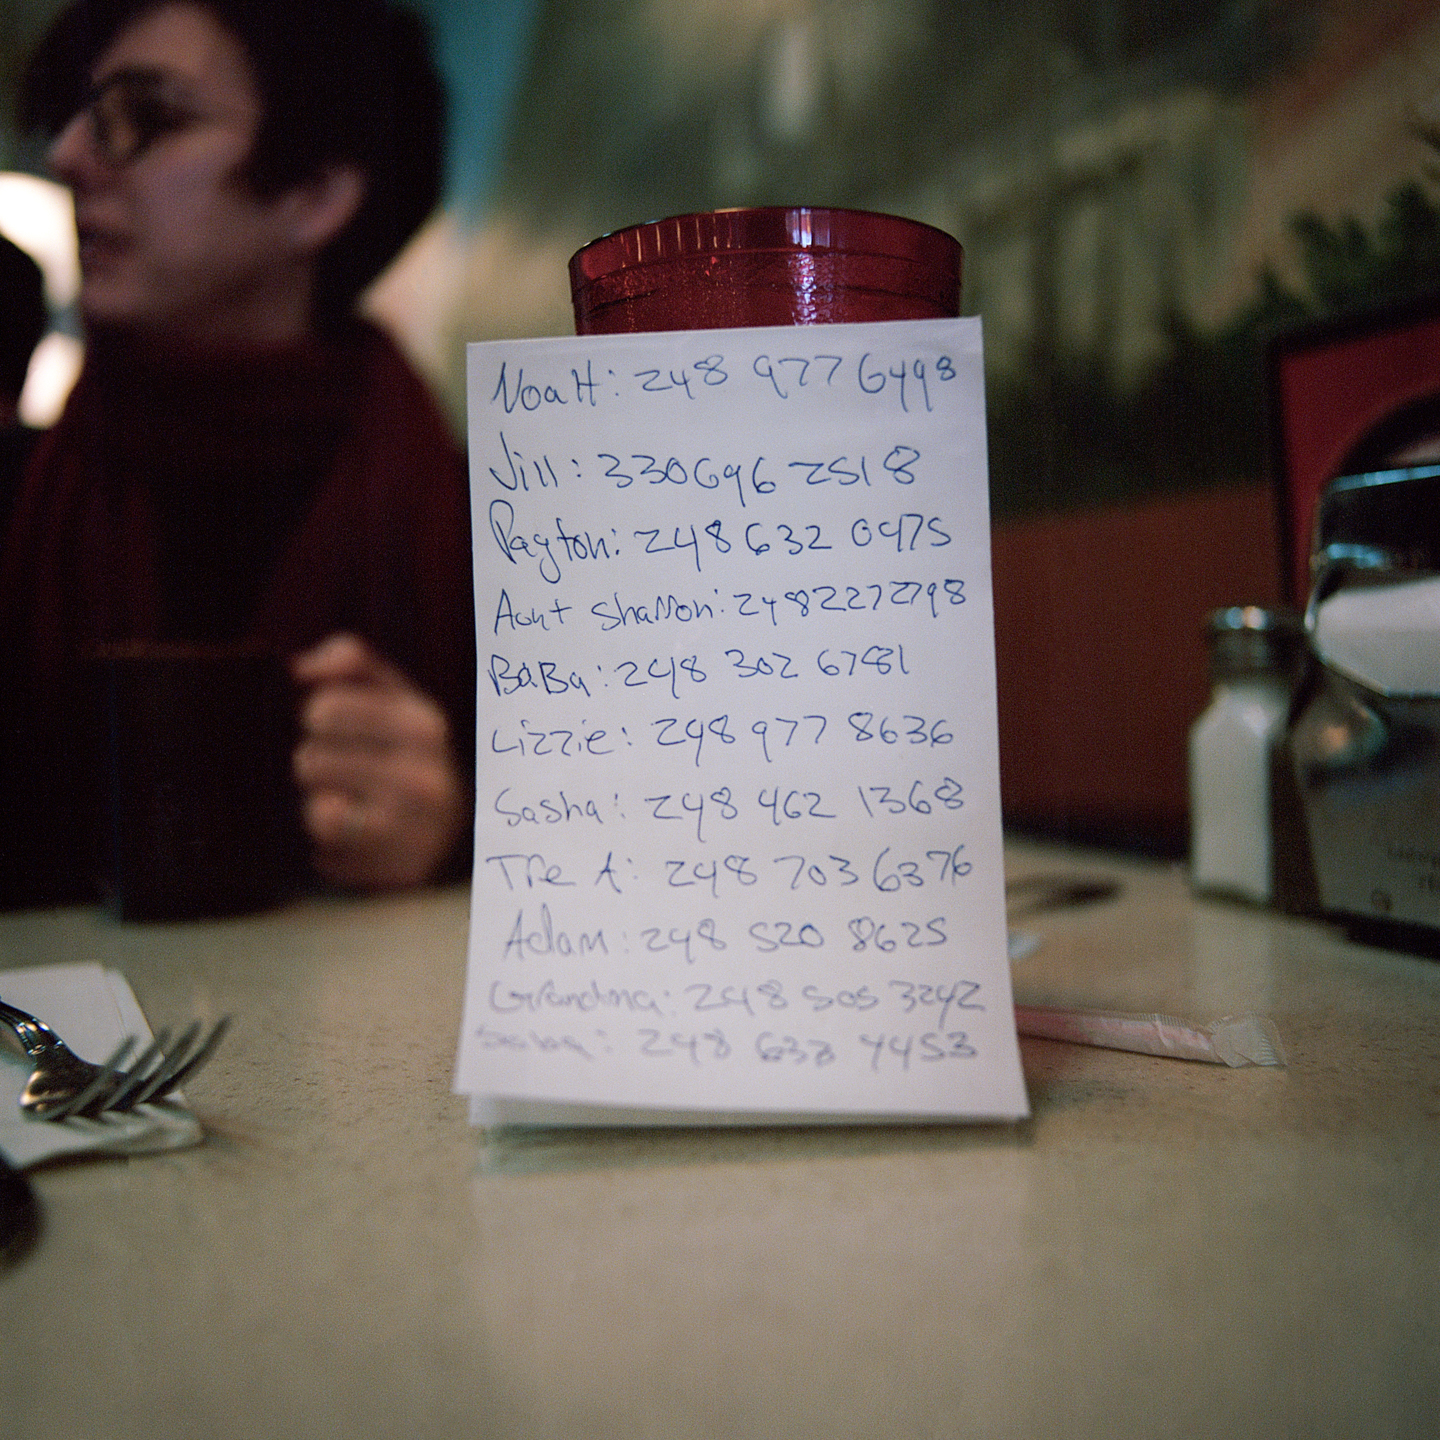 NoaH: 248 977 6498
Jill: 330 696 2518
Payton: 248 632 0475
Aunt Shannon: 248 227 2798
BaBa: 248 302 6781
Lizzie: 248 977 8636
Sasha: 248 462 1368
Tre A: 248 703 6376
Adam: 248 520 8625
Grandma: 248 505 3242
248 4453